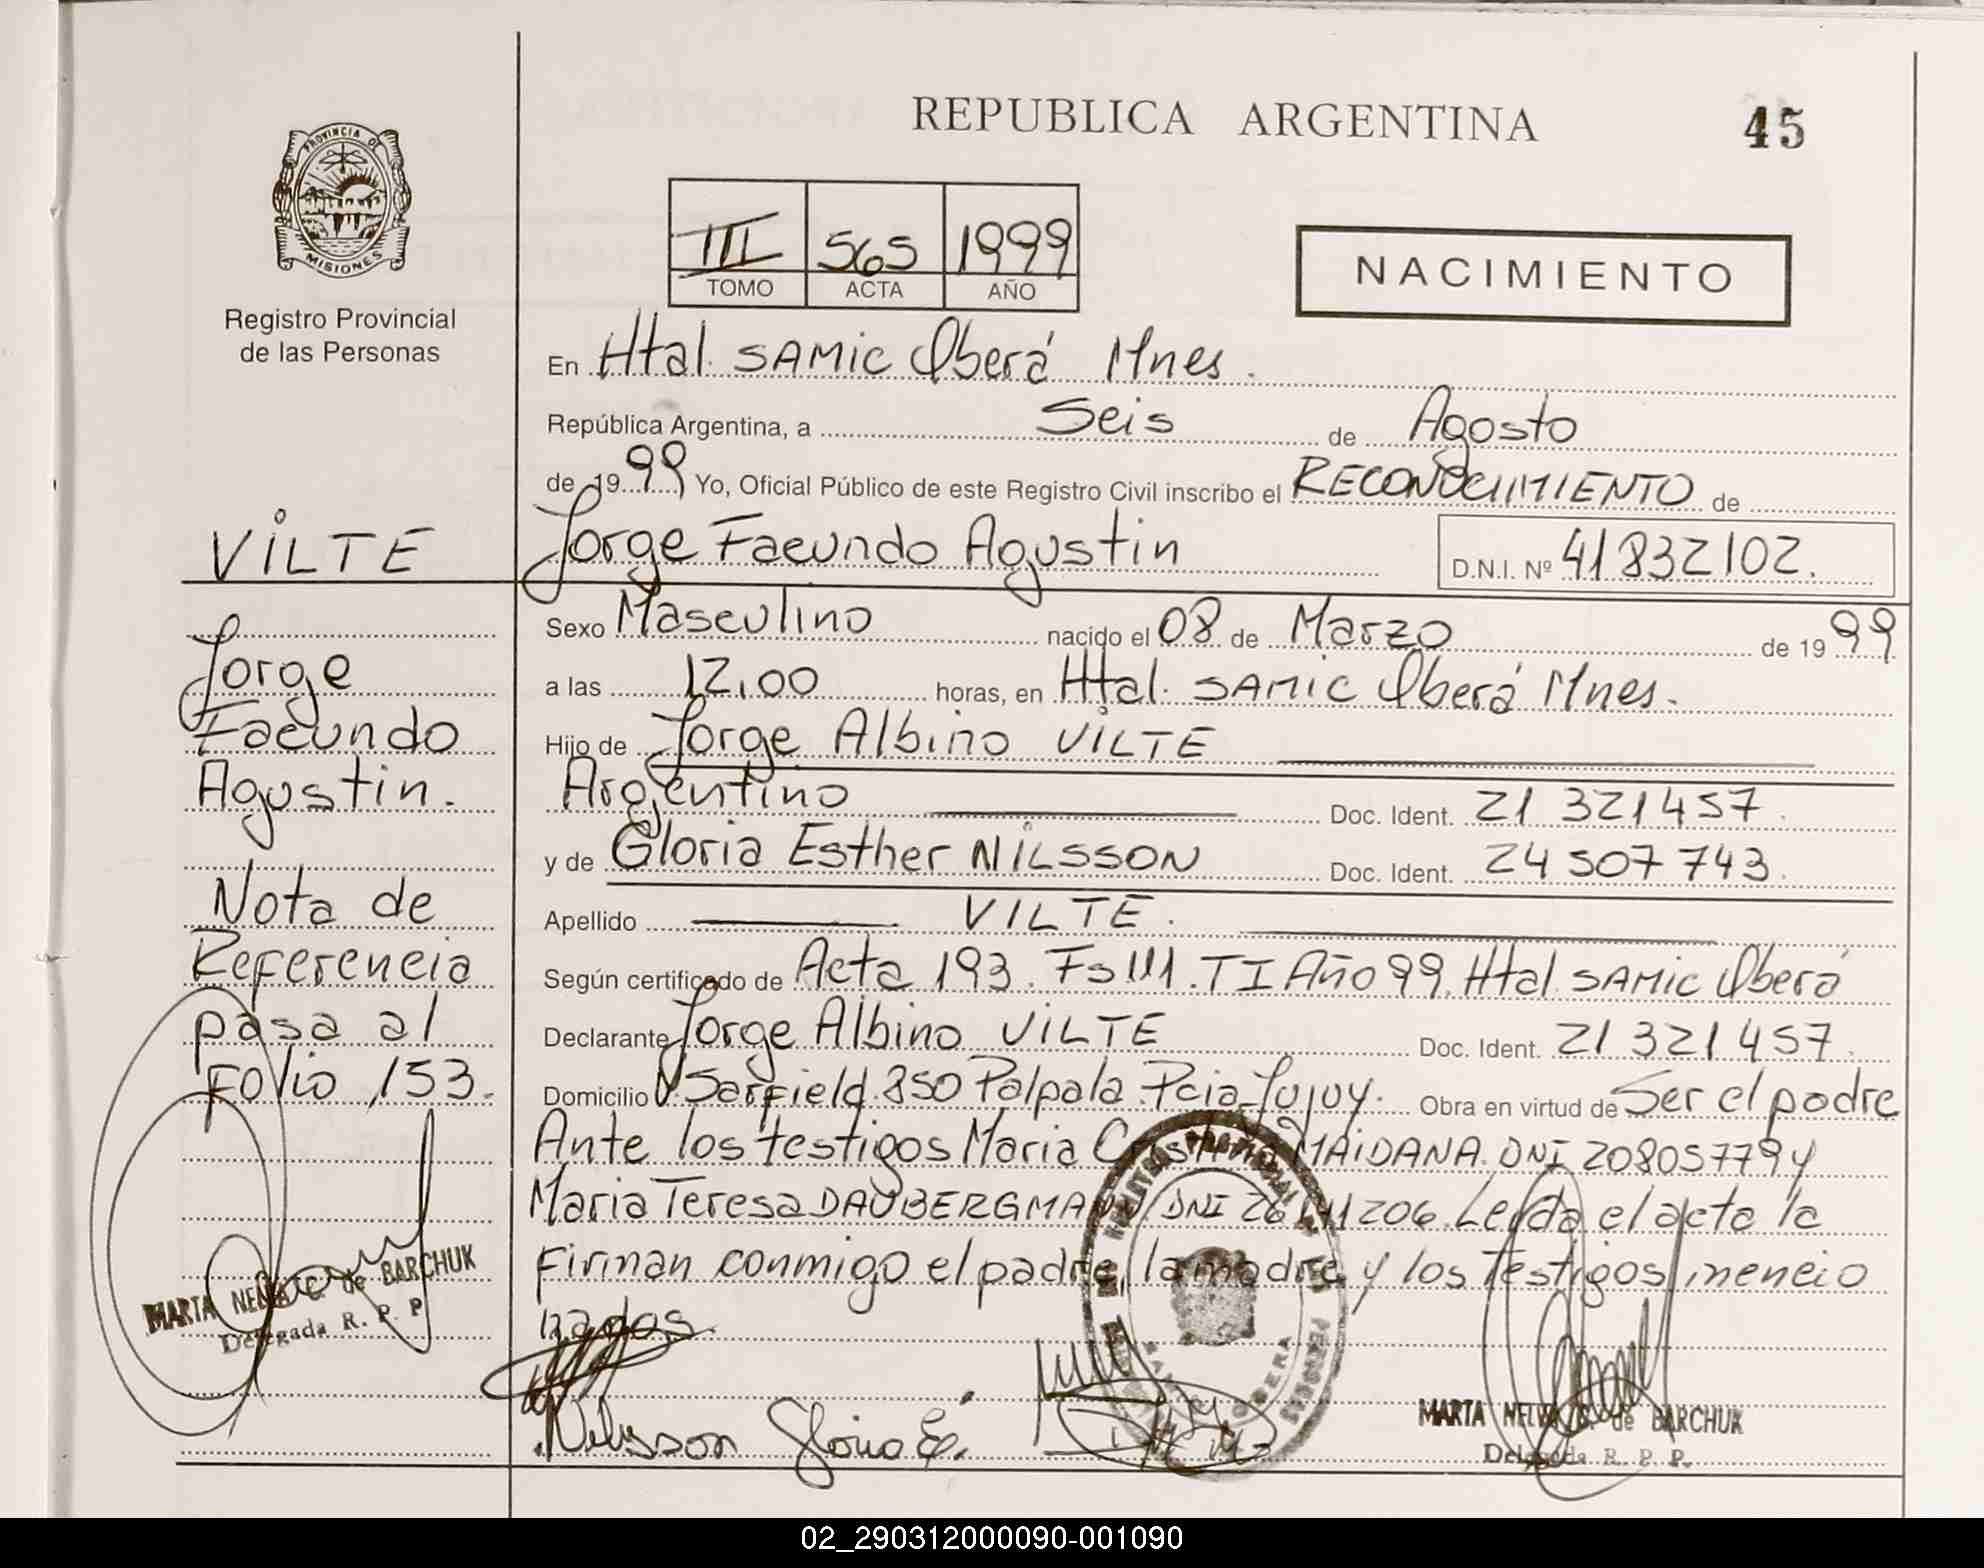 REPUBLICA ARGENTINA
45
PROVINCIA DE
MISIONES
Registro Provincial
de las Personas
III 565 1999
TOMO ACTA AÑO
NACIMIENTO
En Htal. SAMIC Oberá Mnes.
República Argentina, a Seis de Agosto
de 1999, Yo, Oficial Público de este Registro Civil inscribo el RECONOCIMIENTO de
Jorge Facundo Agustin D.N.I. Nº 41832102.
Sexo Masculino nacido el 08 de Marzo de 1999
a las 12,00 horas, en Htal. SAMIC Oberá Mnes.
Hijo de Jorge Albino VILTE
Argentino Doc. Ident. 21 321457.
y de Gloria Esther NILSSON Doc. Ident. 24 507 743.
Apellido VILTE.
Según certificado de Acta 193. Fs 111. T I Año 99. Htal SAMIC Oberá
Declarante Jorge Albino VILTE Doc. Ident. 21 321 457.
Domicilio V. Sarfield 850 Palpala Pcia Jujuy. Obra en virtud de Ser el padre
Ante los testigos Maria Cristina MAIDANA. DNI 20805779 y
Maria Teresa DAUBERGMANN DNI Leida el acta la
Firman conmigo el padre, la madre y los Testigos mencio
nados.
Nilsson Gloria E.
MARTA NELVA C. de BARCHUK
Delegada R. P. P.
VILTE
Jorge
Facundo
Agustin.
Nota de
Referencia
pasa al
Folio 153.
MARTA NELVA C. de BARCHUK
Delegada R. P. P.
02_290312000090-001090